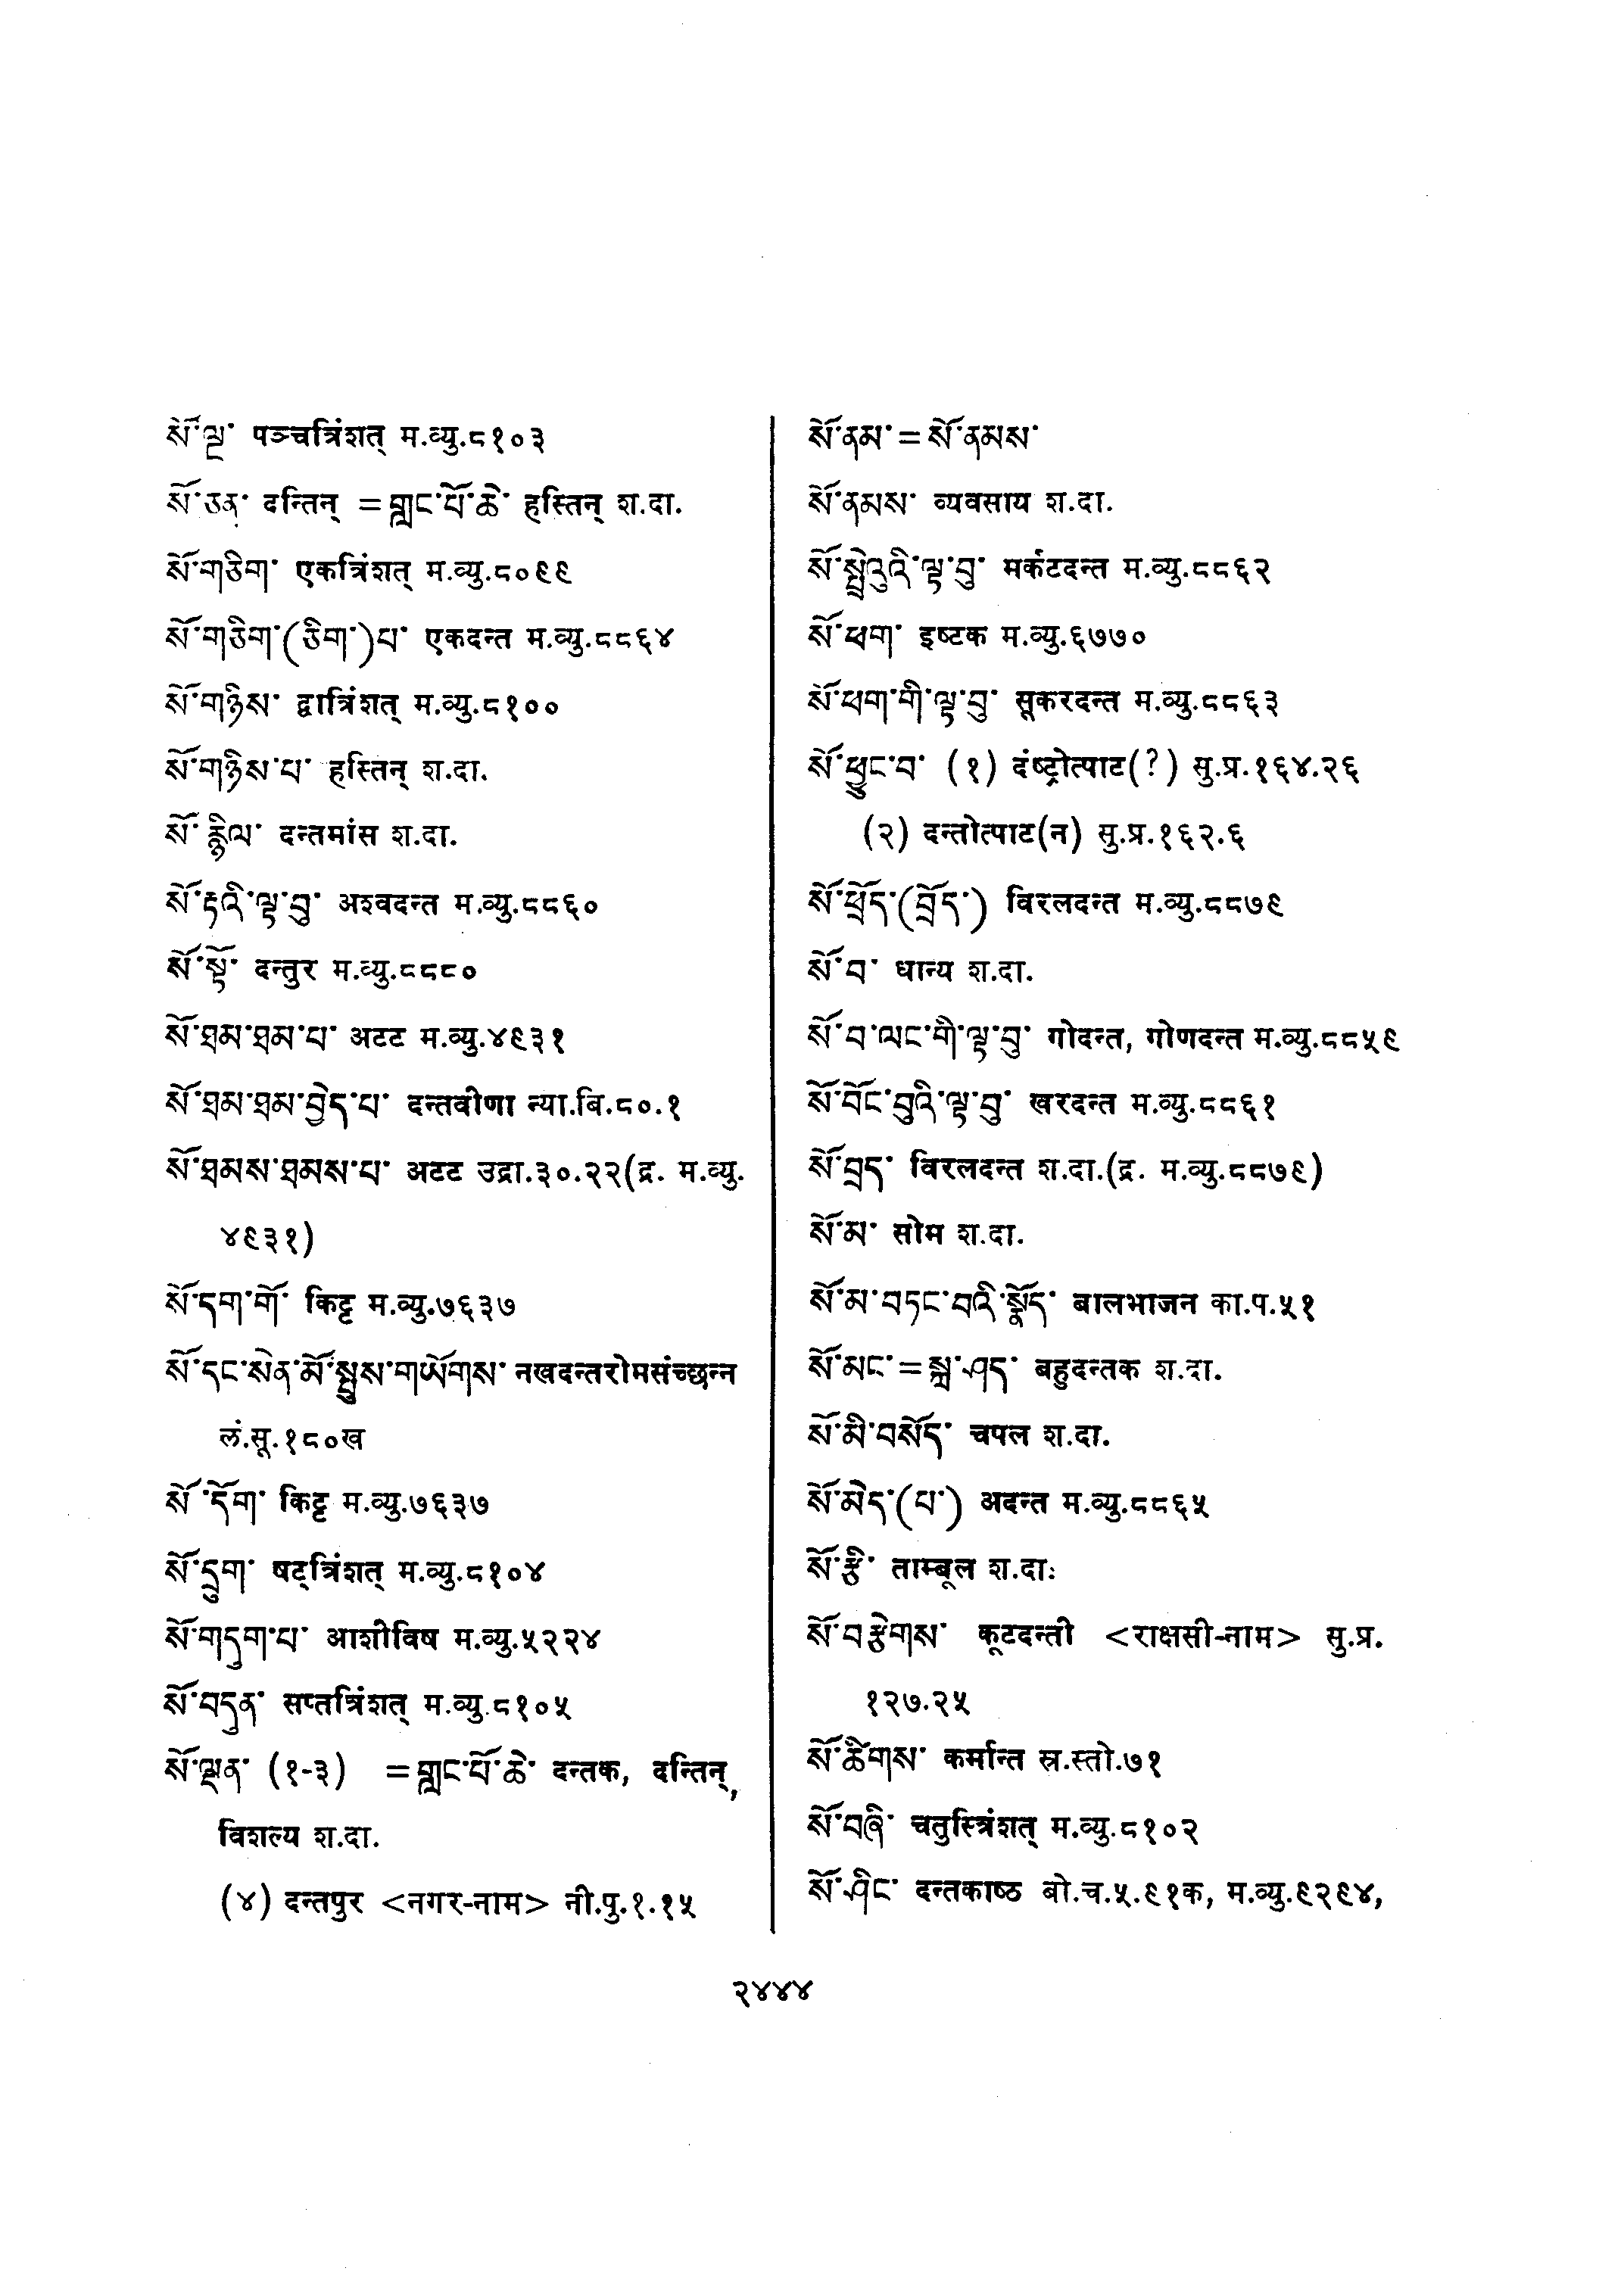 སོ་ལྔ་ पञ्चत्रिंशत् म.व्यु.८१०३
སོ་ཅན་ दन्तिन् =གླང་པོ་ཆེ་ हस्तिन् श.दा.
སོ་གཅིག་ एकत्रिंशत् म.व्यु.८०९९
སོ་གཅིག་(ཅིག་)པ་ एकदन्त म.व्यु.८८६४
སོ་གཉིས་ द्वात्रिंशत् म.व्यु.८१००
སོ་གཉིས་པ་ हस्तिन् श.दा.
སོ་རྙིལ་ दन्तमांस श.दा.
སོ་རྟའི་ལྟ་བུ་ अश्वदन्त म.व्यु.८८६०
སོ་སྟོ་ दन्तुर म.व्यु.८८८०
སོ་ཐམ་ཐམ་པ་ अटट म.व्यु.४९३१
སོ་ཐམ་ཐམ་བྱེད་པ་ दन्तवीणा न्या.बि.८०.१
སོ་ཐམས་ཐམས་པ་ अटट उद्रा.३०.२२(द्र. म.व्यु.
४९३१)
སོ་དག་གོ་ किट्ट म.व्यु.७६३७
སོ་དང་སེན་མོ་སྤུས་གཡོགས་ नखदन्तरोमसंच्छन्न
लं.सू.१८०ख
སོ་དོག་ किट्ट म.व्यु.७६३७
སོ་དྲུག་ षट्त्रिंशत् म.व्यु.८१०४
སོ་གདུག་པ་ आशीविष म.व्यु.५२२४
སོ་བདུན་ सप्तत्रिंशत् म.व्यु.८१०५
སོ་ལྡན་ (१-३) =གླང་པོ་ཆེ་ दन्तक, दन्तिन्,
विशल्य श.दा.
(४) दन्तपुर <नगर-नाम> नी.पु.१.१५
སོ་ནམ་=སོ་ནམས་
སོ་ནམས་ व्यवसाय श.दा.
སོ་སྤྲེའུའི་ལྟ་བུ་ मर्कटदन्त म.व्यु.८८६२
སོ་ཕག་ इष्टक म.व्यु.६७७०
སོ་ཕག་གི་ལྟ་བུ་ सूकरदन्त म.व्यु.८८६३
སོ་ཕྱུང་བ་ (१) दंष्ट्रोत्पाट(?) सु.प्र.१६४.२६
(२) दन्तोत्पाट(न) सु.प्र.१६२.६
སོ་ཕྲོད་(བྲོད་) विरलदन्त म.व्यु.८८७९
སོ་བ་ धान्य श.दा.
སོ་བ་ལང་གི་ལྟ་བུ་ गोदन्त, गोणदन्त म.व्यु.८८५९
སོ་བོང་བུའི་ལྟ་བུ་ खरदन्त म.व्यु.८८६१
སོ་བྲད་ विरलदन्त श.दा.(द्र. म.व्यु.८८७९)
སོ་མ་ सोम श.दा.
སོ་མ་བཏང་བའི་སྣོད་ बालभाजन का.प.५१
སོ་མང་=སྐྲ་ཤད་ बहुदन्तक श.दा.
སོ་མི་བསོད་ चपल श.दा.
སོ་མེད་(པ་) अदन्त म.व्यु.८८६५
སོ་རྩི་ ताम्बूल श.दाः
སོ་བརྩེགས་ कूटदन्ती <राक्षसी-नाम> सु.प्र.
१२७.२५
སོ་ཚིགས་ कर्मान्त स्र.स्तो.७१
སོ་བཞི་ चतुस्त्रिंशत् म.व्यु.८१०२
སོ་ཤིང་ दन्तकाष्ठ बो.च.५.९१क, म.व्यु.९२९४,
२४४४